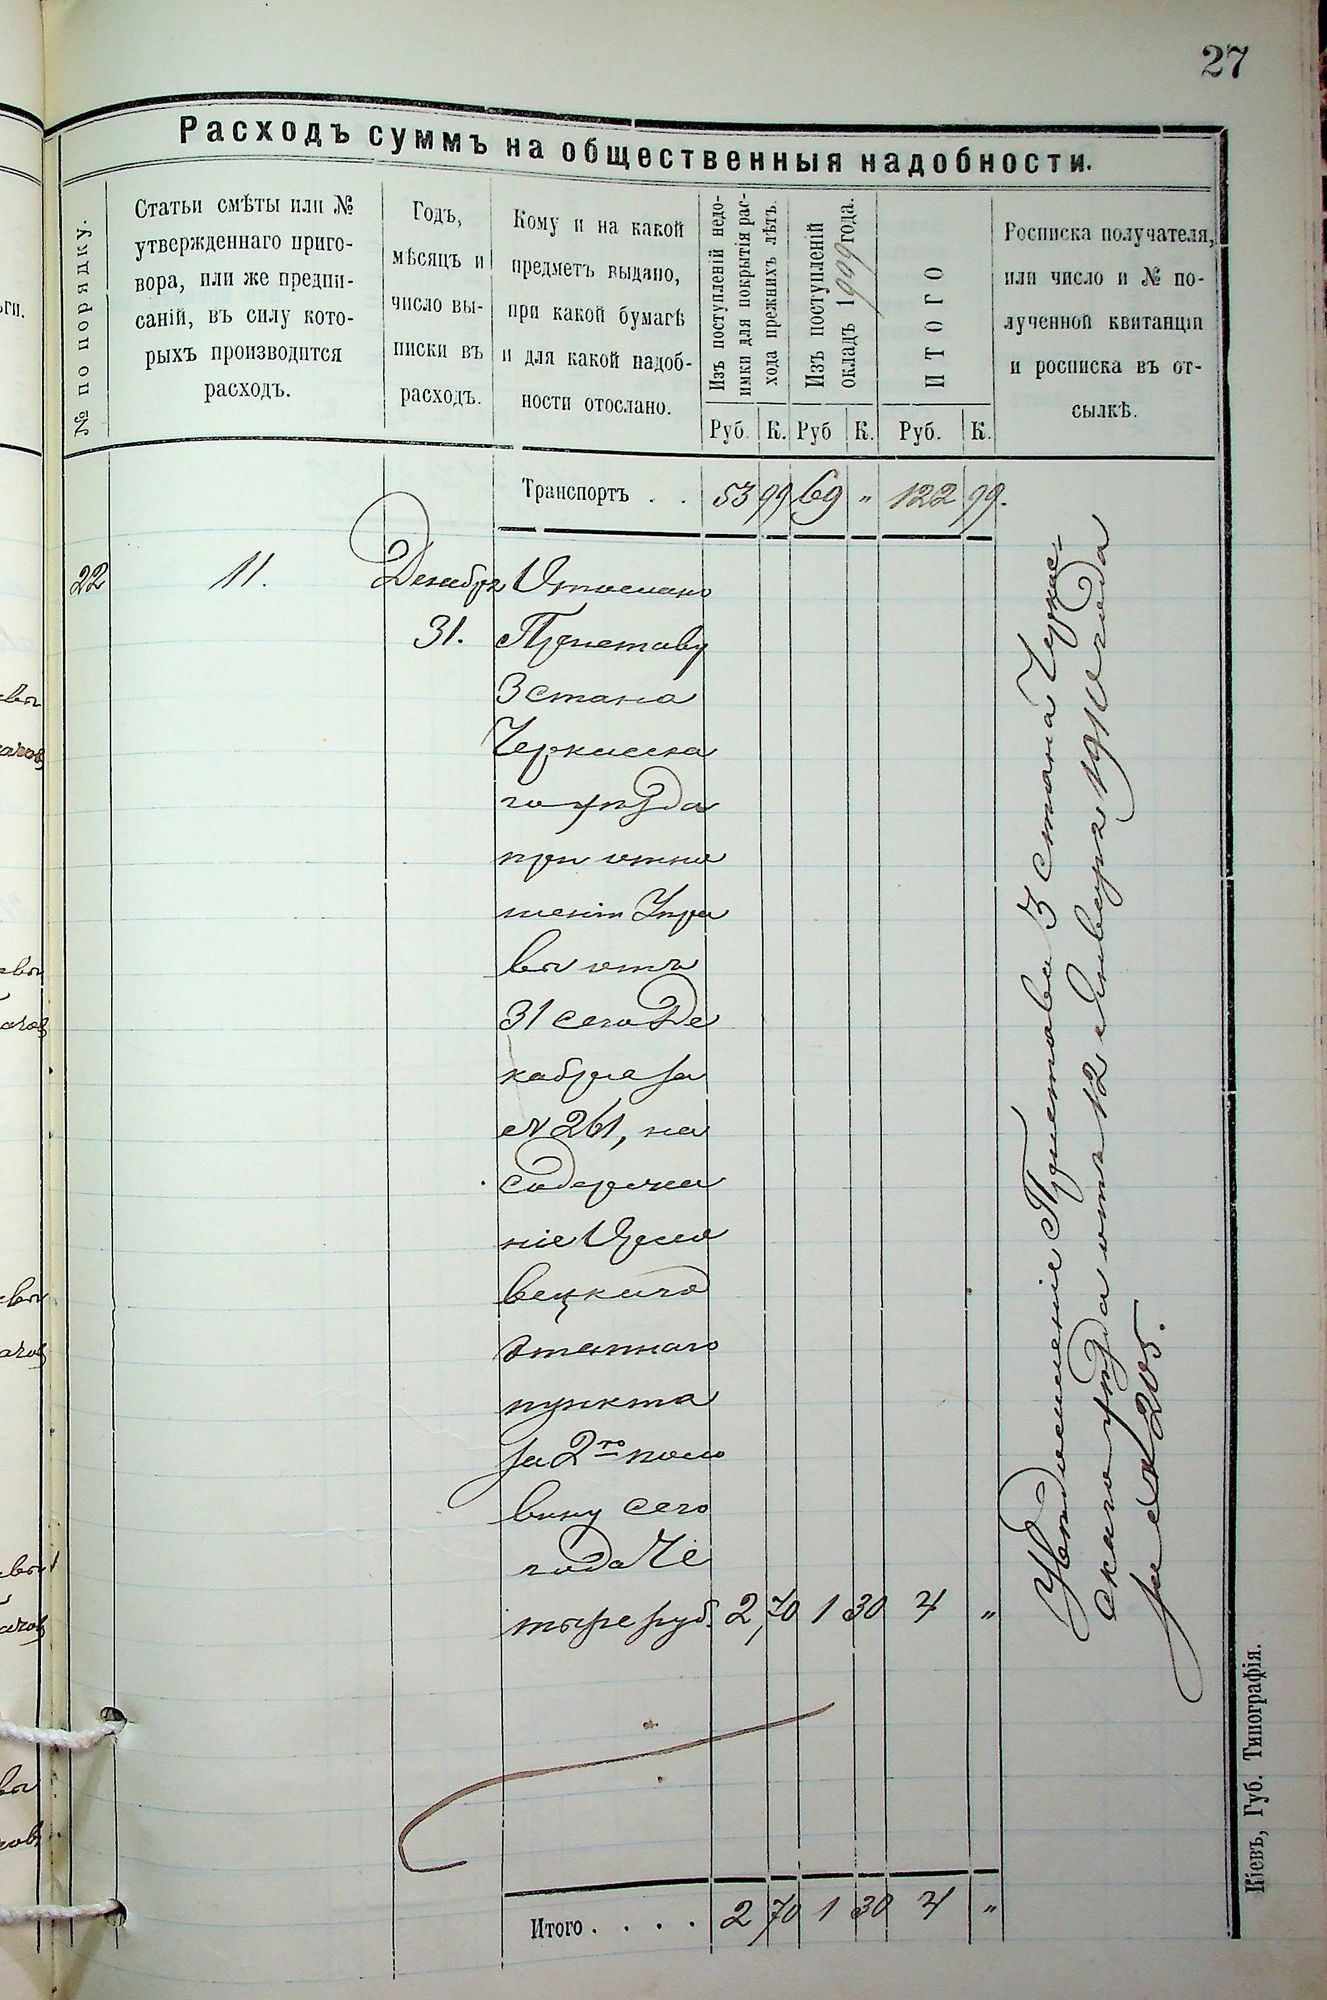 27
Расходъ суммъ на общественныя надобности.
№ по порядку.
Статьи смѣты или №
утвержденнаго приго-
вора, или же предпи-
саній, въ силу кото-
рыхъ производится
расходъ.
Годъ,
мѣсяцъ и
число вы-
писки въ
расходъ.
Кому и на какой
предметъ выдано,
при какой бумагѣ
и для какой надоб-
ности отослано.
Изъ поступленій недо-
имки для покрытія рас-
хода прежнихъ лѣтъ.
Изъ поступленій
окладъ 1909 года.
ИТОГО
Росписка получателя,
или число и № по-
лученной квитанціи
и росписка въ от-
сылкѣ.
Руб. К. Руб К. Руб. К.
Транспортъ . . 53 99 69 „ 122 99.
22 11. Декабря Отослано
31. Приставу
3 стана
Черкасска
го уѣзда
при отно
шеніи Упра
вы отъ
31 сего Де
кабря за
№ 261, на
содержа
ніе
этапнаго
пункта
за 2ю поло
вину сего
года Че
тыре руб. 2 70 1 30 4 „
Итого . . . . 2 70 1 30 4 „
Увѣдомленіе Пристава 3 стана Черкас-
скаго уѣзда отъ 12 Января 1910 года
за № 205.
Кіевъ, Губ. Типографія.